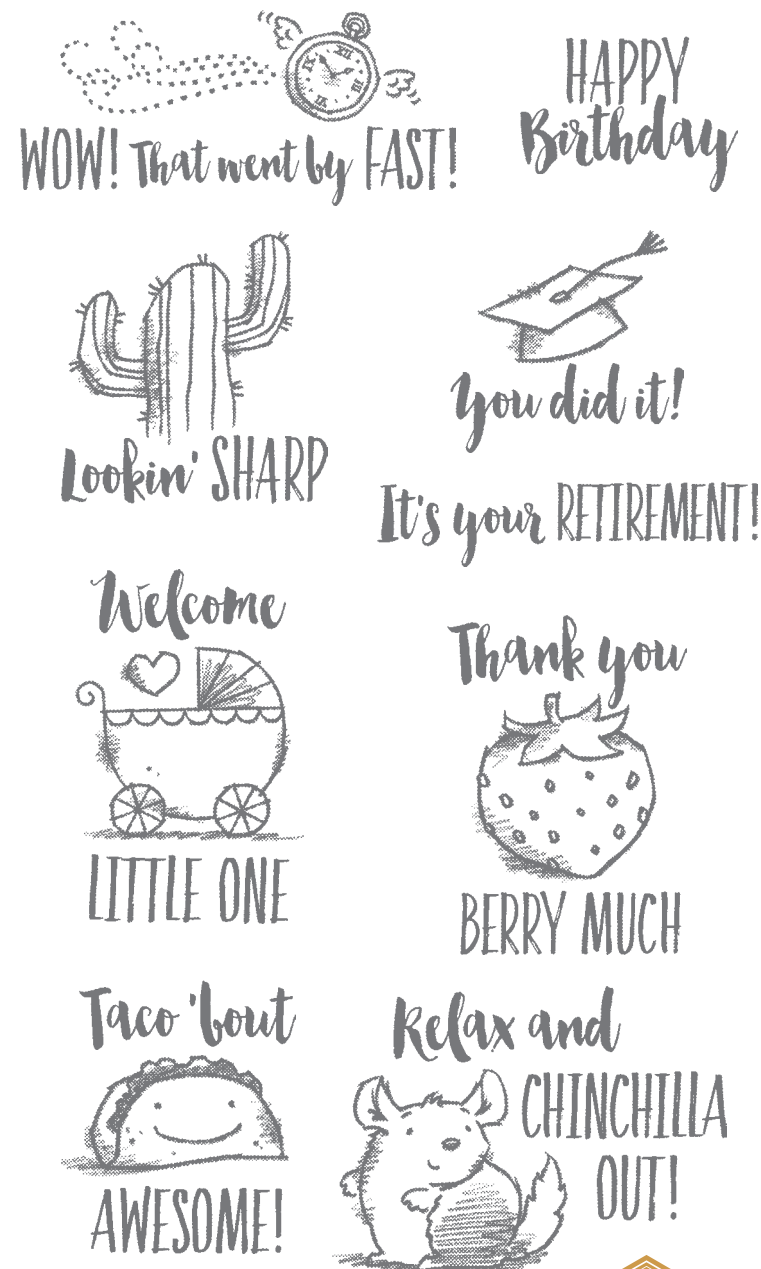 WOW! That went by FAST!
HAPPY
Birthday
Lookin' SHARP
You did it!
It's your RETIREMENT!
Welcome
LITTLE ONE
Thank you
BERRY MUCH
Taco 'bout
AWESOME!
Relax and
CHINCHILLA
OUT!